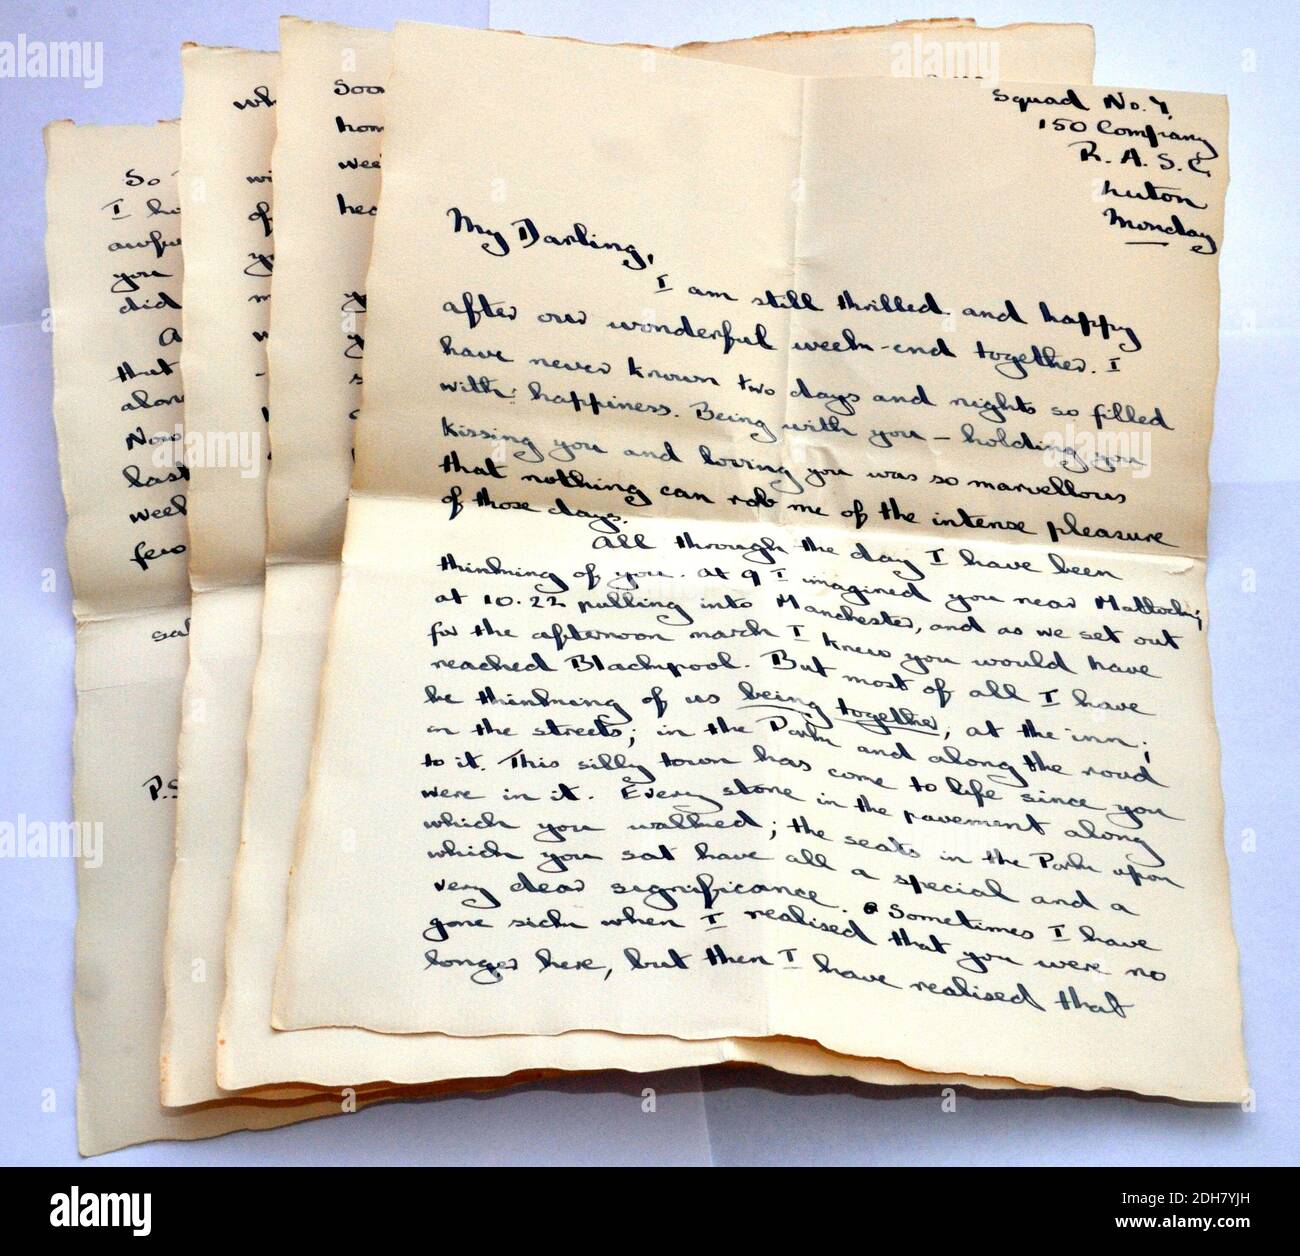 Squad No. 7,
150 Company
R.A.S.C.
Luton
Monday
My Darling,
I am still thrilled and happy
after our wonderful week-end together. I
have never known two days and nights so filled
with happiness. Being with you – holding you
kissing you and loving you was so marvellous
that nothing can rob me of the intense pleasure
of those days.
All through the day I have been
thinking of you. At 9 I imagined you near Matlock;
at 10.22 pulling into Manchester, and as we set out
for the afternoon march I knew you would have
reached Blackpool. But most of all I have
be thinking of us being together, at the inn;
in the streets; in the Park and along the road
to it. This silly town has come to life since you
were in it. Every stone in the pavement along
which you walked; the seats in the Park upon
which you sat have all a special and a
very dear significance. Sometimes I have
gone sick when I realised that you were no
longer here, but then I have realised that
So
I
you
did
that
Now
last
week
few
P.S
of
alamy
Image ID: 2DH7YJH
www.alamy.com